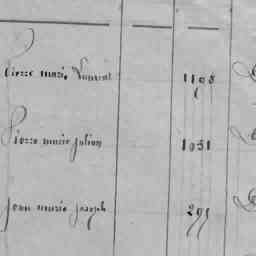 Pierre marie Laurent 1108
Pierre marie julien 1051
jean marie joseph 295